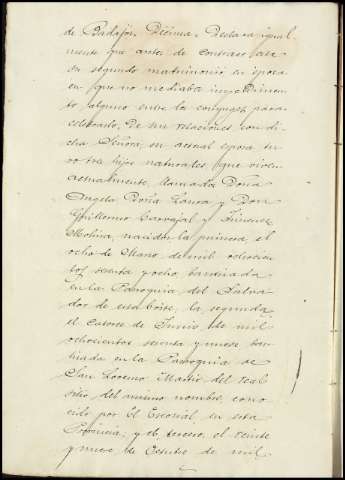 de Badajoz. Décima. Declara igual-
mente que antes de contraer este
su segundo matrimonio en época
en que no mediaba impedimen-
to alguno entre los conyuges para
celebrarlo, de sus relaciones con di-
cha Señora, su actual esposa tu-
vo tres hijos naturales, que viven
actualmente, llamados Doña
Angela Doña Laura y Don
Guillermo Carvajal y Jimenez
Molina, nacidos la primera, el
ocho de Marzo de mil ochocien-
tos sesenta y ocho bautizada
en la Parroquia del Salva-
dor de esta Corte, la segunda
el catorce de Junio de mil
ochocientos sesenta y nueve bau-
tizada en la Parroquia de
San Lorenzo Martir del real
sitio del mismo nombre, cono-
cido por El Escorial en esta
Provincia; y el tercero, el veinte
y nueve de Octubre de mil